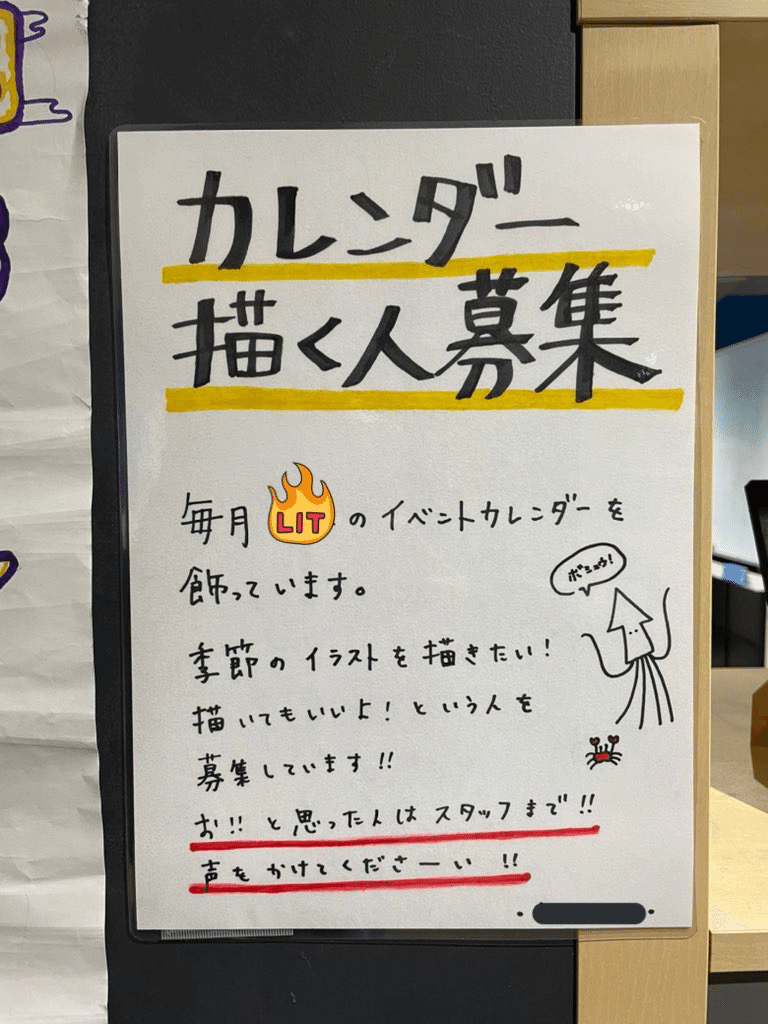 カレンダー
描く人募集
毎月LITのイベントカレンダーを
飾っています。
ボシュウ!
季節のイラストを描きたい!
描いてもいいよ!という人を
募集しています!!
お!!と思った人はスタッフまで!!
声をかけてくださーい!!